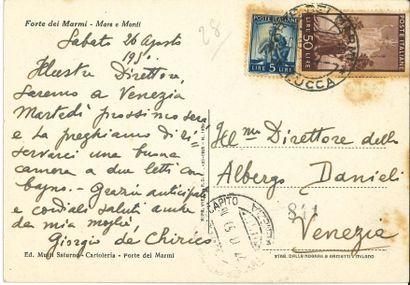 Forte dei Marmi - Mare e Monti
28
Sabato 26 Agosto
195
Illustre Direttore,
saremo a Venezia
Martedì prossimo sera
e la preghiamo di ri=
servarci una buona
camera a due letti con
bagno. - Grazie anticipate
e cordiali saluti anche
da mia moglie,
Giorgio de Chirico
Ed. Saturno - Cartoleria - Forte dei Marmi
POSTE ITALIANE
LIRE 5 LIRE
POSTE ITALIANE
LIRE 50 LIRE
LUCCA
Ill mo Direttore dello
Albergo Danieli
Venezia
RECAPITO
STAB. DALLE NOGARE & ARMETTI - MILANO